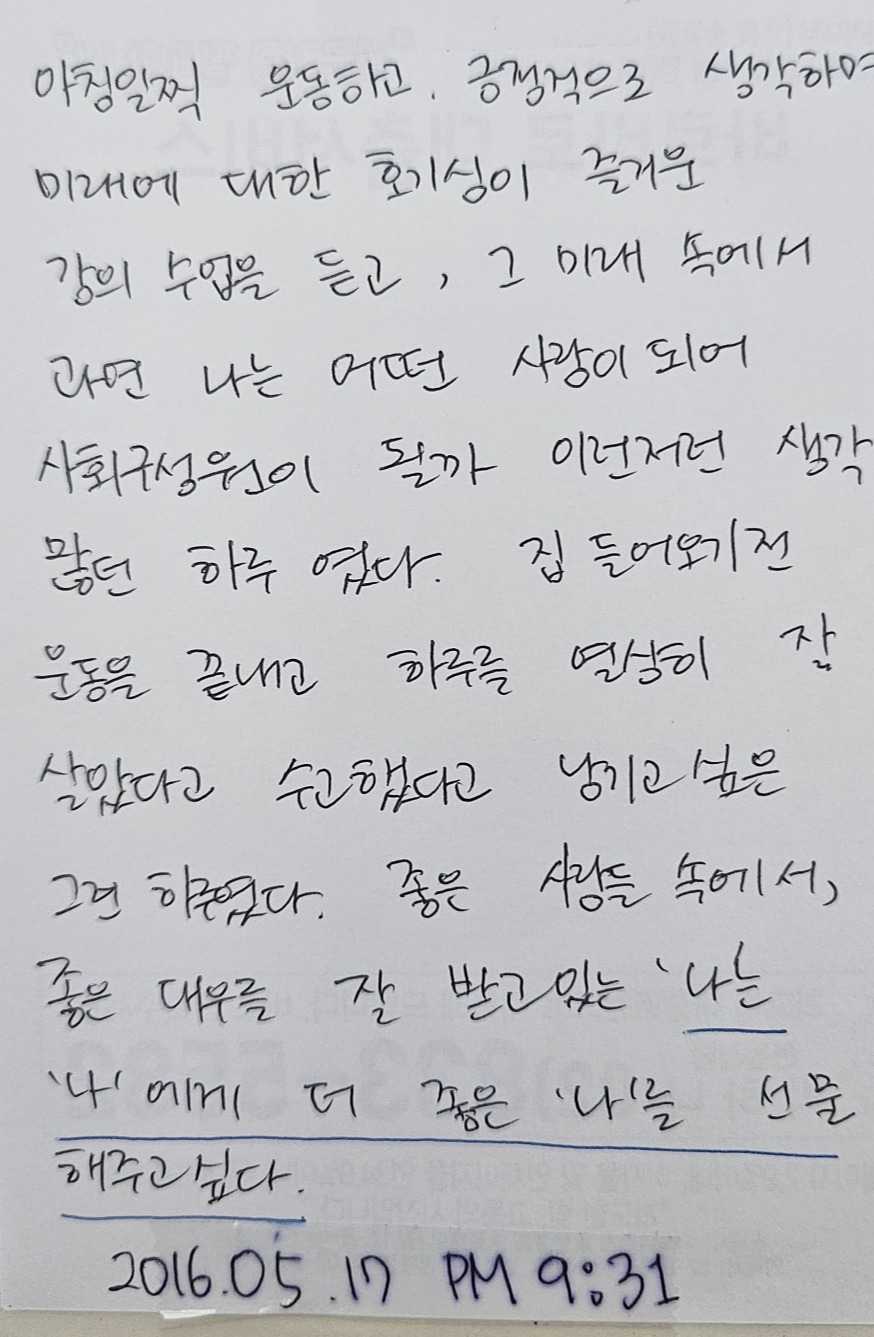 아침일찍 운동하고. 긍정적으로 생각하며
미래에 대한 호기심이 즐거운
강의 수업을 듣고, 그 미래 속에서
과연 나는 어떤 사람이 되어
사회구성원이 될까 이런저런 생각
많던 하루 였다. 집 들어오기전
운동을 끝내고 하루를 열심히 잘
살았다고 수고했다고 남기고싶은
그런 하루였다. 좋은 사람들 속에서,
좋은 대우를 잘 받고있는 '나'는
'나'에게 더 좋은 '나'를 선물
해주고싶다.
2016.05.17 PM 9:31